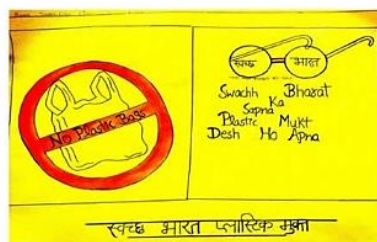 No Plastic Bags
स्वच्छ भारत
Swachh Bharat
Ka
Sapna
Plastic Mukt
Desh Ho Apna
स्वच्छ भारत प्लास्टिक मुक्त